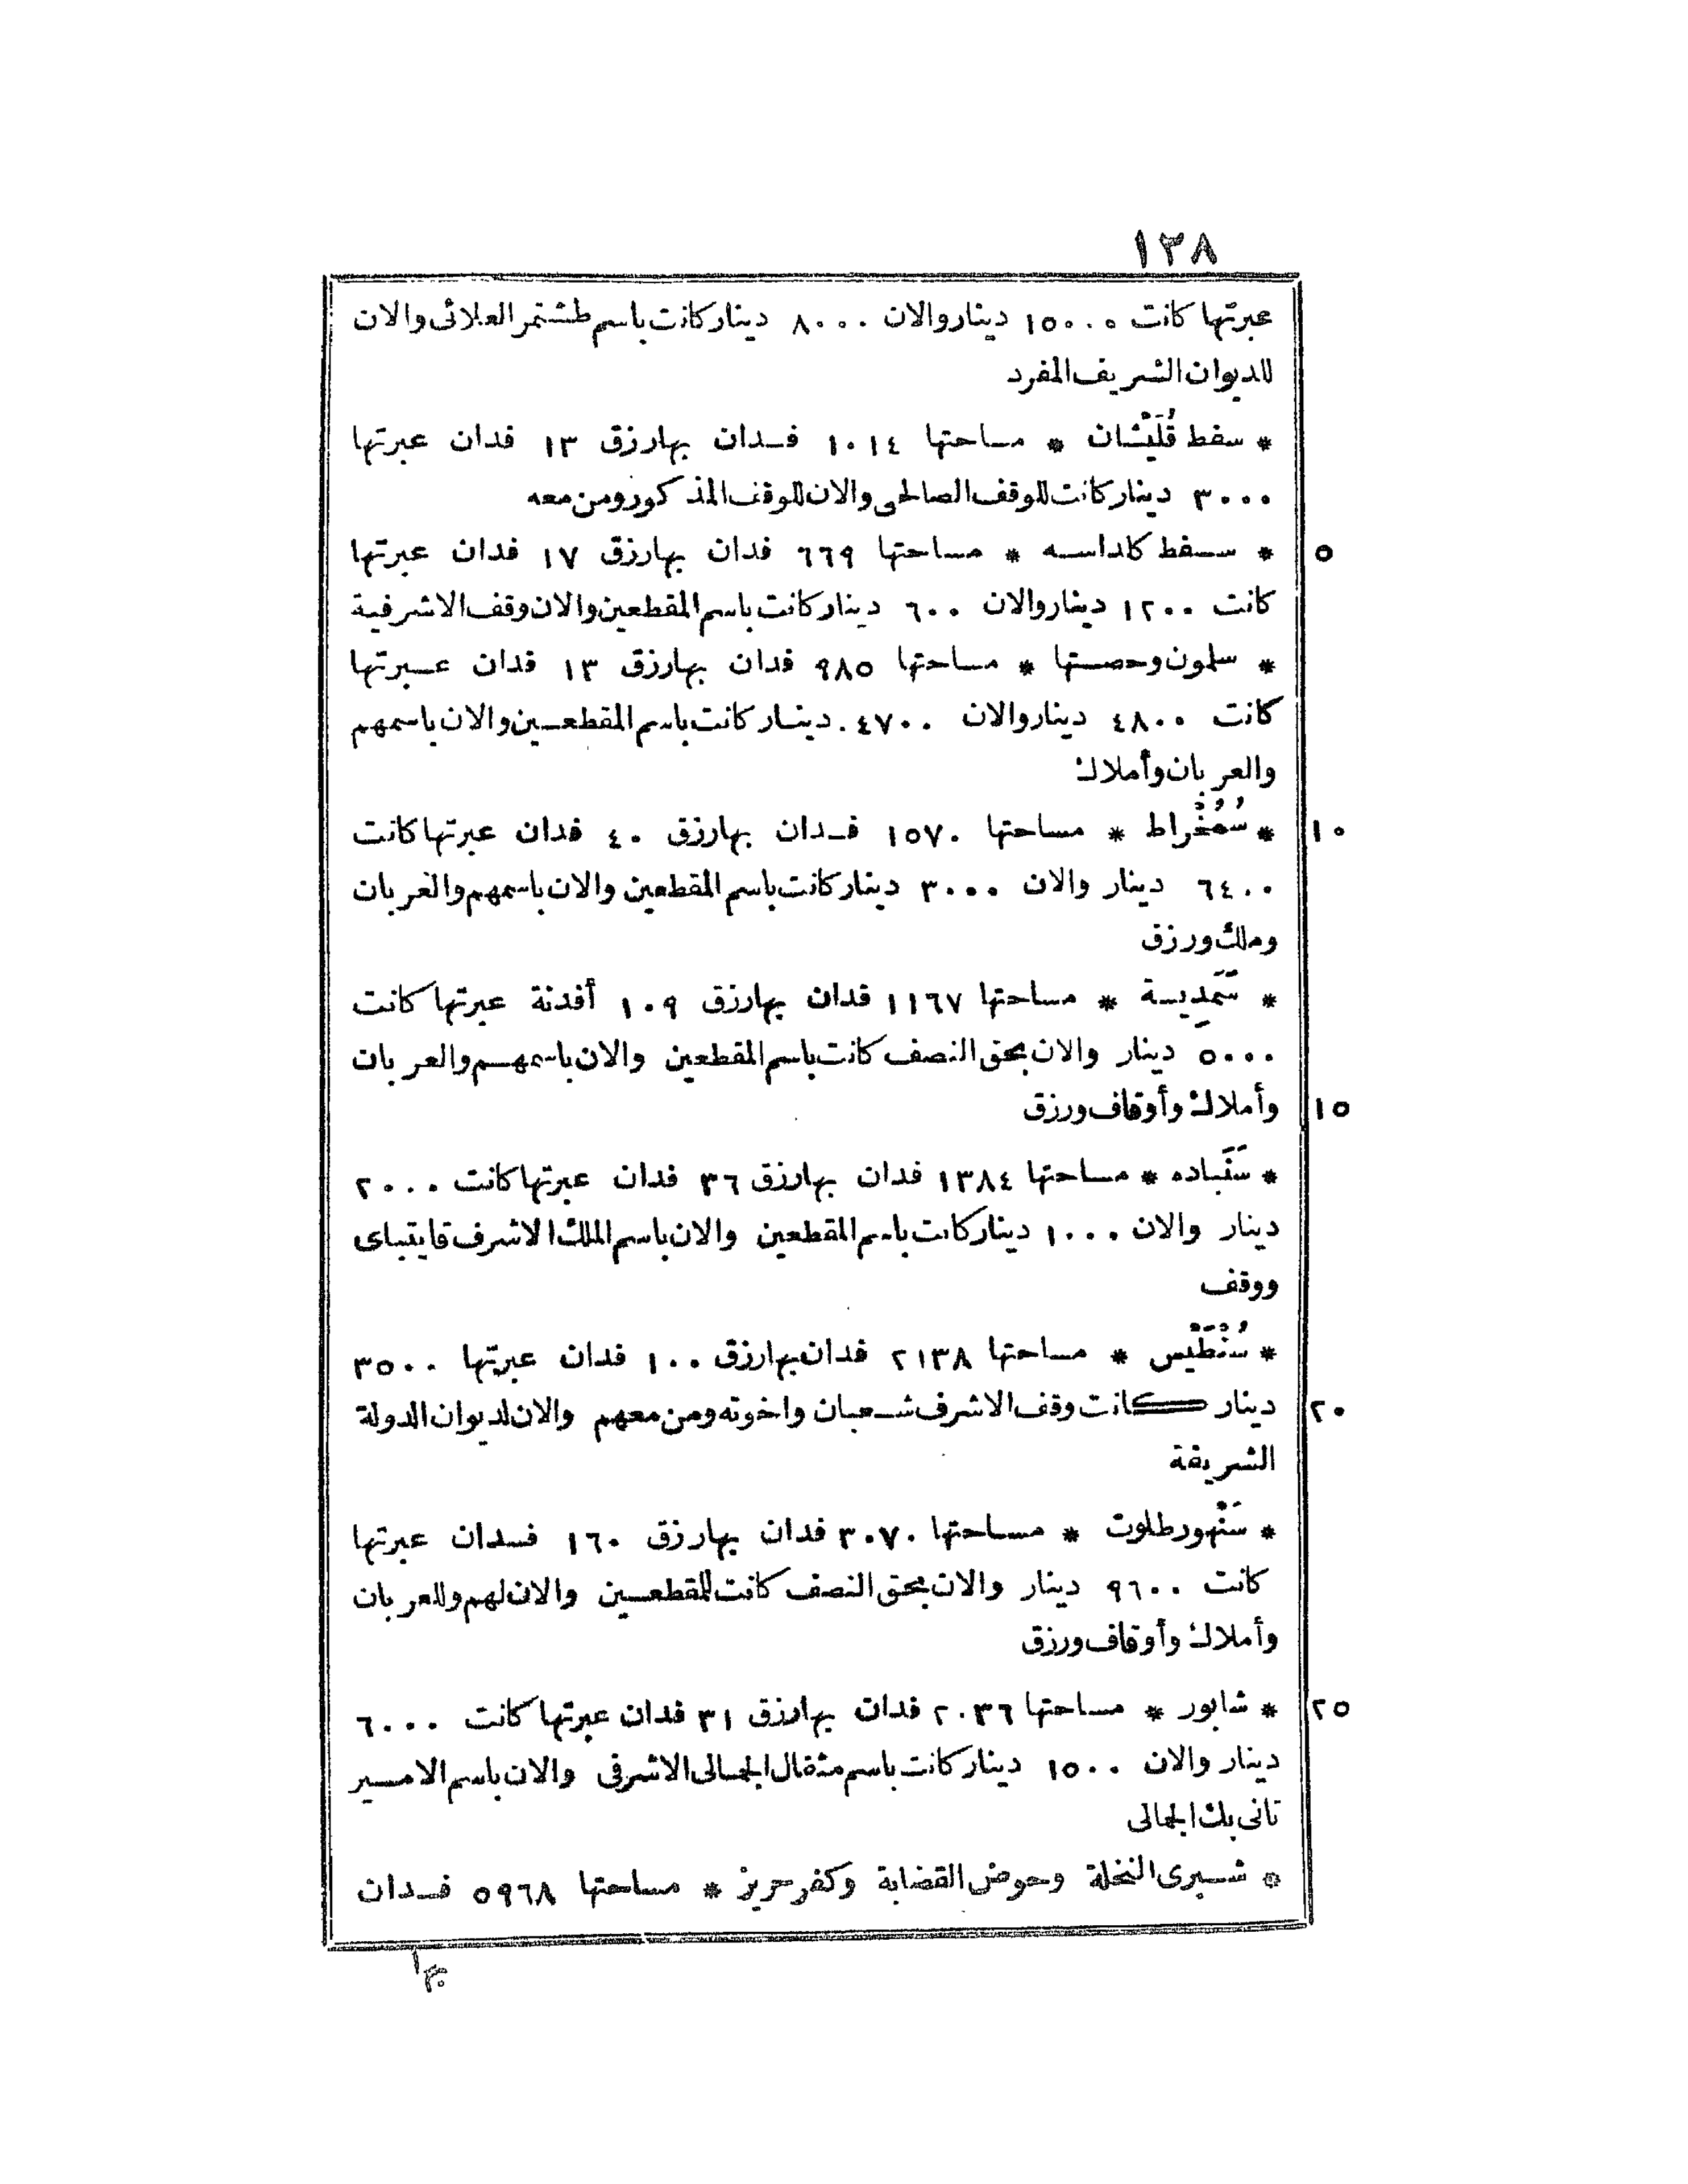 ١٣٨
عبرتها كانت ١٥٠٠٠ دينار والان ٨٠٠٠ دينار كانت باسم طشتمر العلائى والان
للديوان الشريف المفرد
* سفط قُلَيْشان * مساحتها ١٠١٤ فدان بها رزق ١٣ فدان عبرتها
٣٠٠٠ دينار كانت للوقف الصالحى والان للوقف المذكور ومن معه
٥ * سفط كداسه * مساحتها ٦٦٩ فدان بها رزق ١٧ فدان عبرتها
كانت ١٢٠٠ دينار والان ٦٠٠ دينار كانت باسم المقطعين والان وقف الاشرفية
* سلمون وحصتها * مساحتها ٩٨٥ فدان بها رزق ١٣ فدان عبرتها
كانت ٤٨٠٠ دينار والان ٤٧٠٠ دينار كانت باسم المقطعين والان باسمهم
والعربان وأملاك
١٠ * سُمُخْراط * مساحتها ١٥٧٠ فدان بها رزق ٤٠ فدان عبرتها كانت
٦٤٠٠ دينار والان ٣٠٠٠ دينار كانت باسم المقطعين والان باسمهم والعربان
وملك ورزق
* سَمَدِيسة * مساحتها ١١٦٧ فدان بها رزق ١٠٩ أفدنة عبرتها كانت
٥٠٠٠ دينار والان بحق النصف كانت باسم المقطعين والان باسمهم والعربان
١٥ وأملاك وأوقاف ورزق
* سَنَباده * مساحتها ١٣٨٤ فدان بها رزق ٣٦ فدان عبرتها كانت ٢٠٠٠
دينار والان ١٠٠٠ دينار كانت باسم المقطعين والان باسم الملك الاشرف قايتباى
ووقف
* سُنْطَيْس * مساحتها ٢١٣٨ فدان بها رزق ١٠٠ فدان عبرتها ٣٥٠٠
٢٠ دينار كانت وقف الاشرف شعبان واخوته ومن معهم والان لديوان الدولة
الشريفة
* سَنْهور طلوت * مساحتها ٣٠٧٠ فدان بها رزق ١٦٠ فدان عبرتها
كانت ٩٦٠٠ دينار والان بحق النصف كانت للمقطعين والان لهم وللعربان
وأملاك وأوقاف ورزق
٢٥ * شابور * مساحتها ٢٠٣٦ فدان بها رزق ٣١ فدان عبرتها كانت ٦٠٠٠
دينار والان ١٥٠٠ دينار كانت باسم مثقال الجمالى الاشرفى والان باسم الامير
تانى بك الجمالى
* شبرى النخلة وحوض القضابة وكفر حريز * مساحتها ٥٩٦٨ فدان
بها